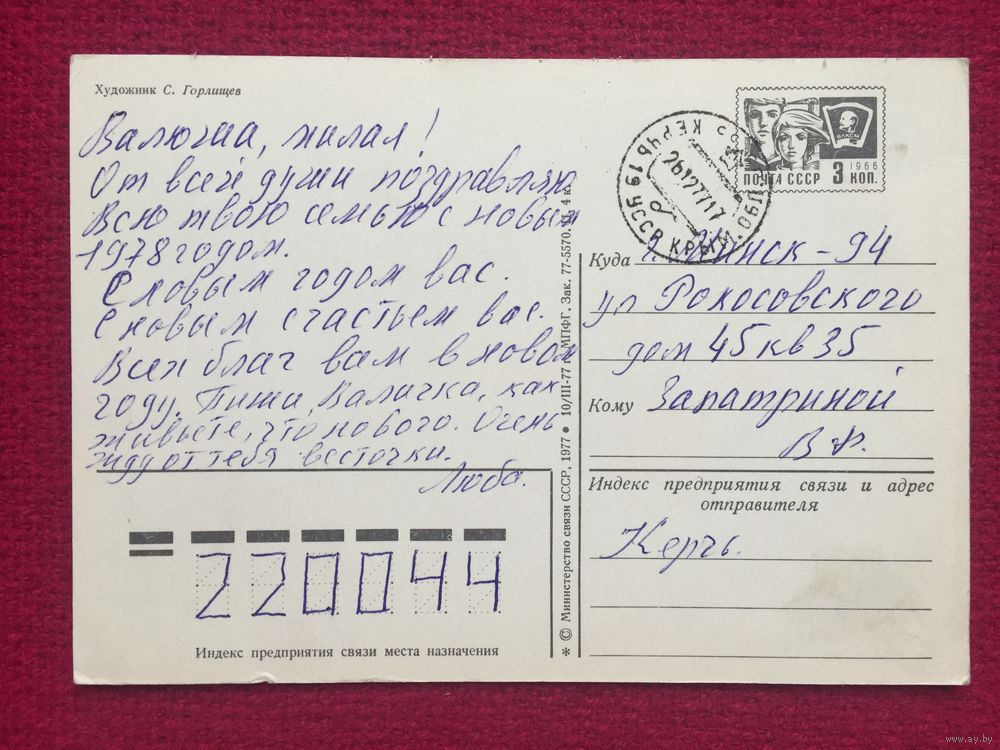 Художник С. Горлищев
Валюша, милая!
От всей души поздравляю
Всю твою семью с новым
1978 годом.
С новым годом вас.
С новым счастьем вас.
Всех благ вам в новом
году. Пиши, Валичка, как
живьете, что нового. Очень
жду от тебя весточки.
Люба.
220044
Индекс предприятия связи места назначения
* © Министерство связи СССР, 1977 ● 10/III-77 г. МПФГ. Зак. 77-5570. 4 к.
ВЛКСМ
1966
ПОЧТА СССР 3 КОП.
КЕРЧЬ 19 УССР КРЫМ. ОБЛ.
261277 17
Куда г. Минск - 94
ул Рокосовского
дом 45 кв 35
Кому Запатриной
В Ф.
Индекс предприятия связи и адрес
отправителя
Керчь.
www.ay.by